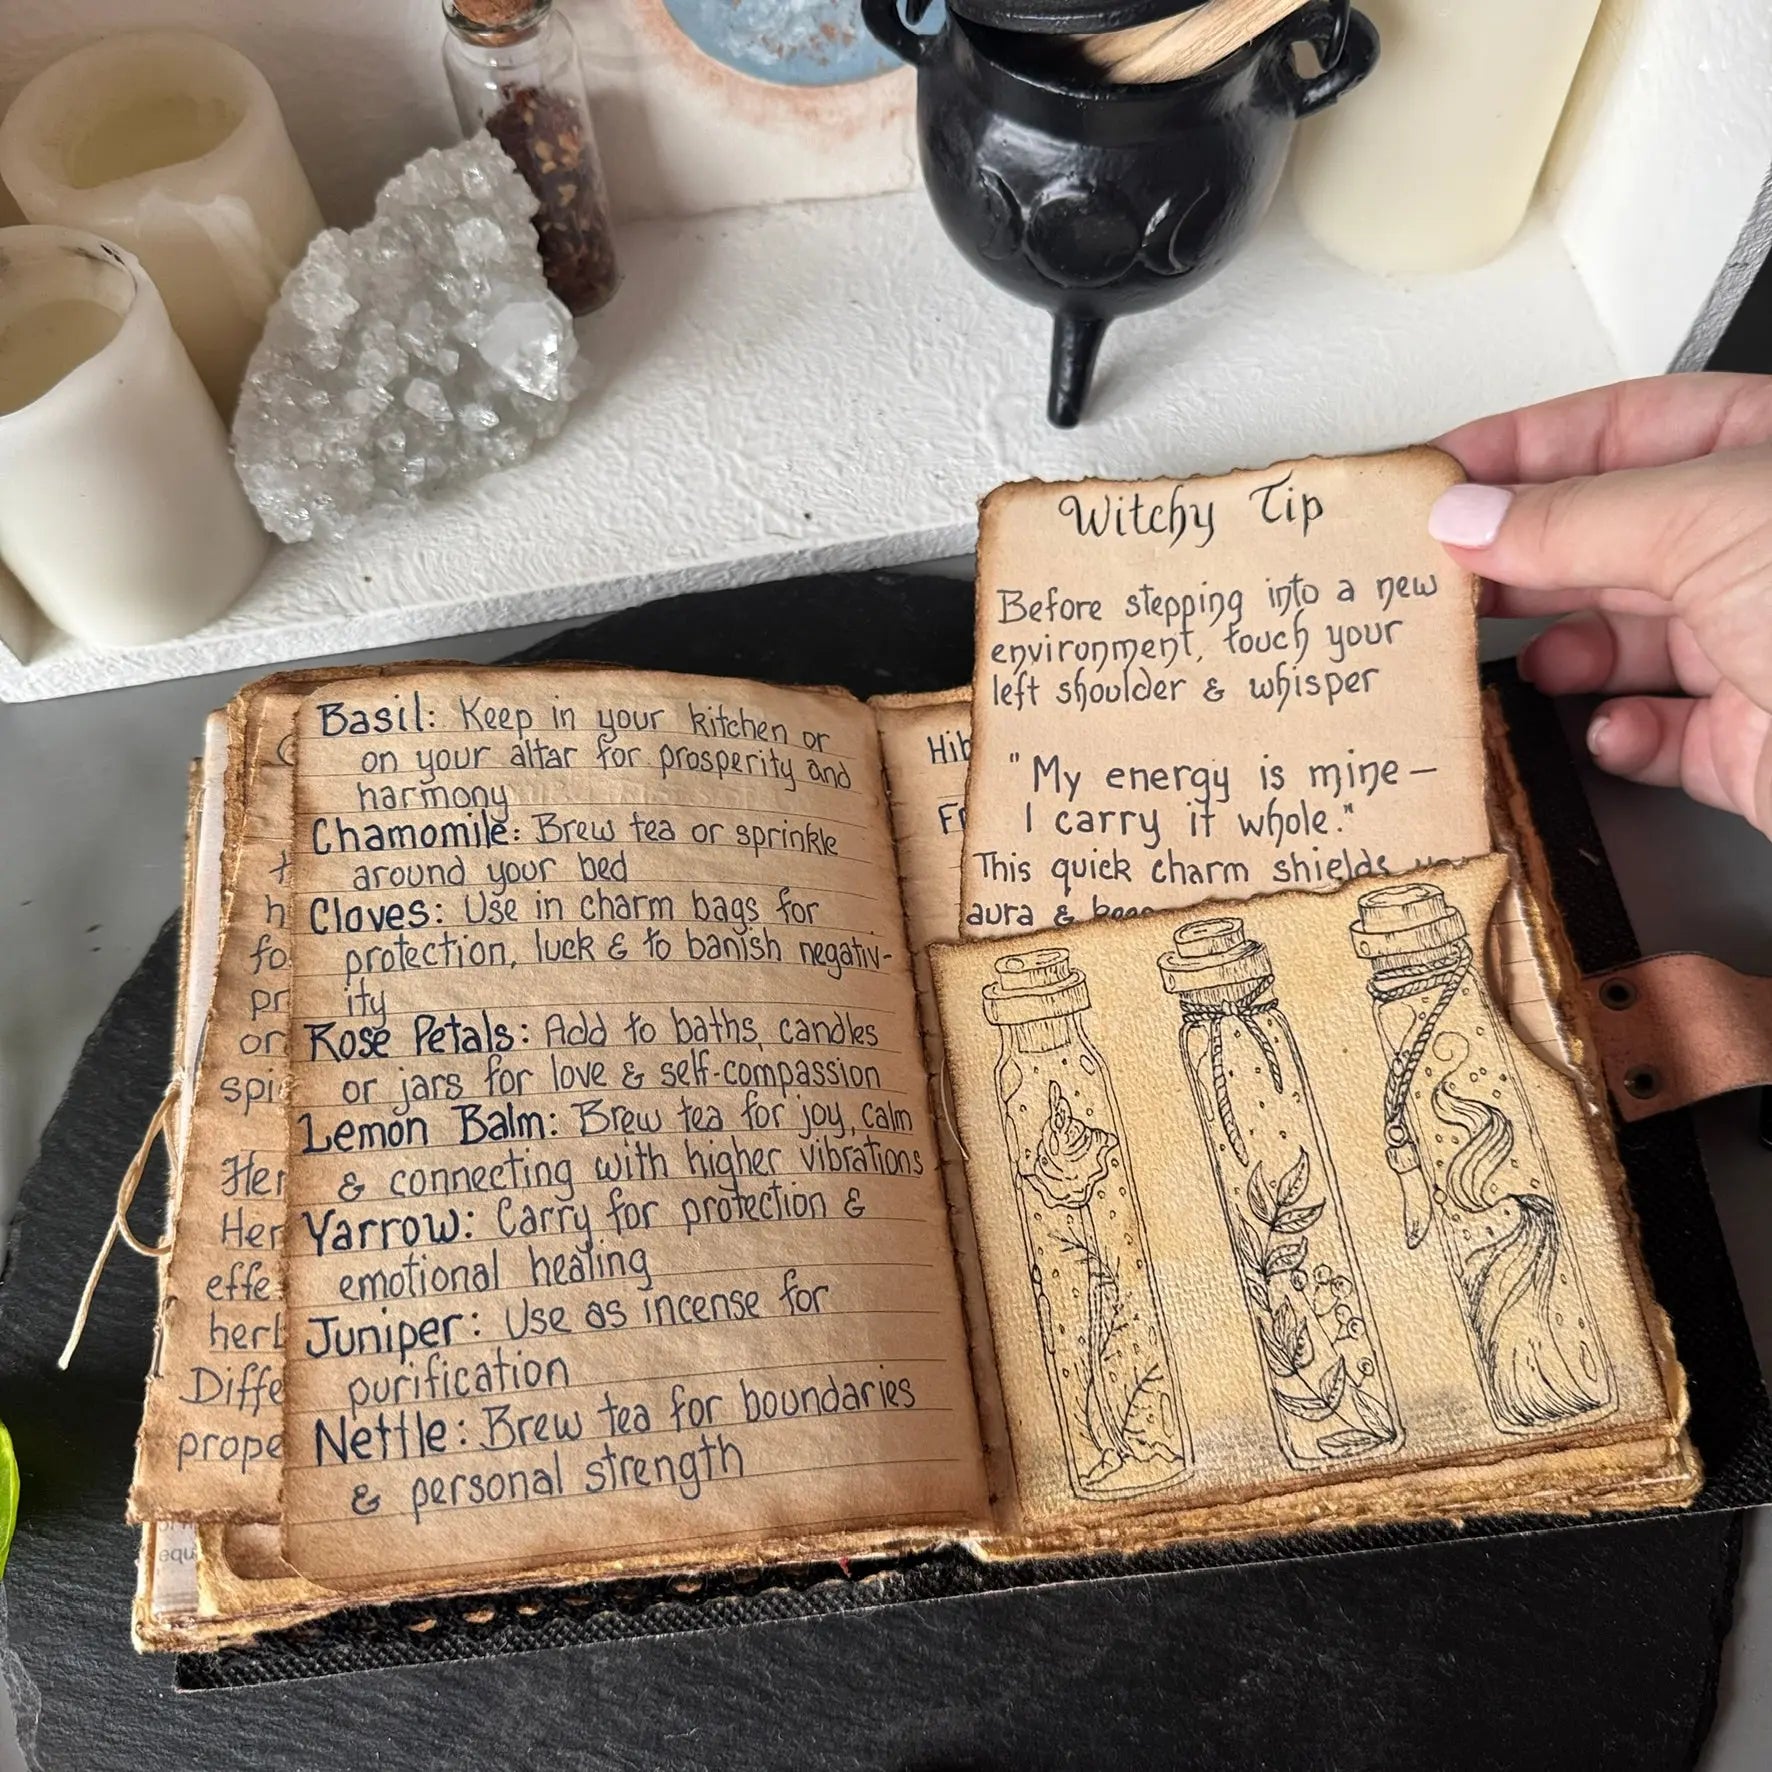 Basil: Keep in your kitchen or
on your altar for prosperity and
harmony
Chamomile: Brew tea or sprinkle
around your bed
Cloves: Use in charm bags for
protection, luck & to banish negativ-
ity
Rose Petals: Add to baths, candles
or jars for love & self-compassion
Lemon Balm: Brew tea for joy, calm
& connecting with higher vibrations
Yarrow: Carry for protection &
emotional healing
Juniper: Use as incense for
purification
Nettle: Brew tea for boundaries
& personal strength
Witchy Tip
Before stepping into a new
environment, touch your
left shoulder & whisper
"My energy is mine –
I carry it whole."
This quick charm shields
aura &